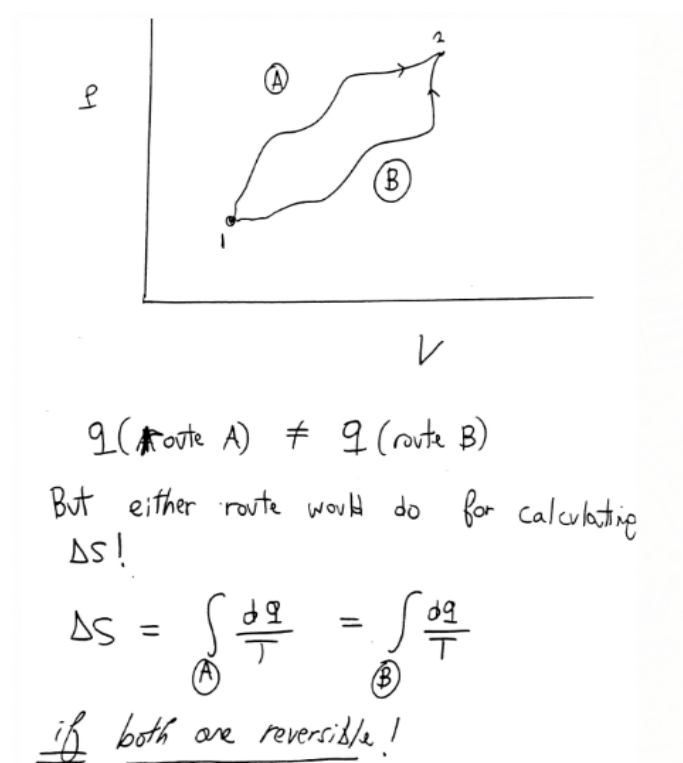 2
A
P
B
1
V
q (route A) ≠ q (route B)
But either route would do for calculating
ΔS!
ΔS = ∫ dq/T = ∫ dq/T
A B
if both are reversible!